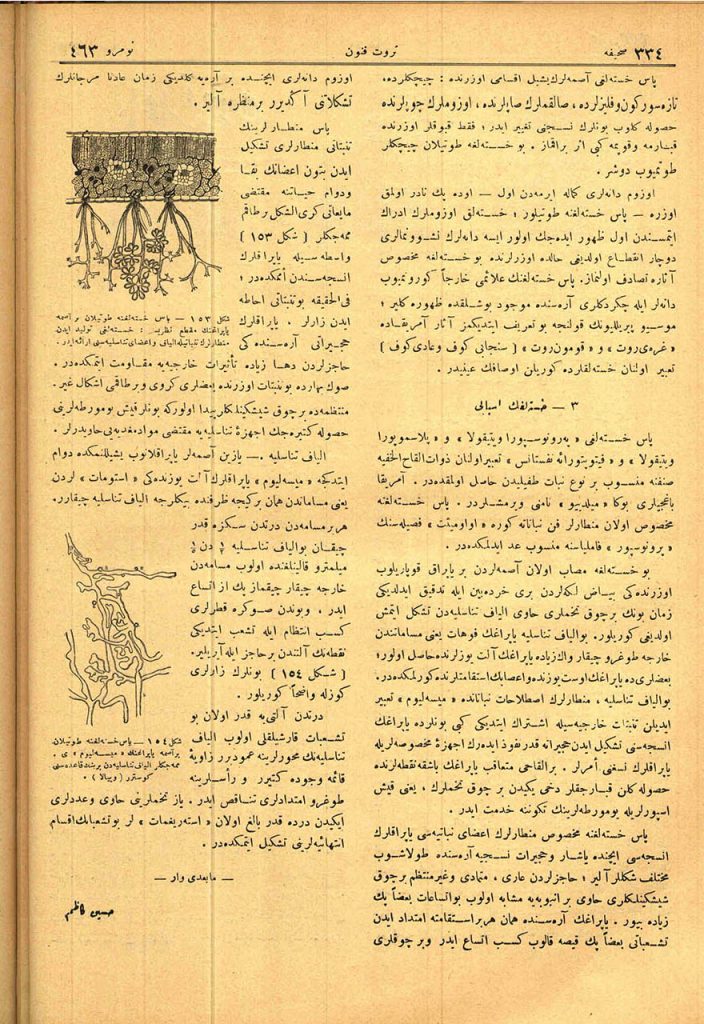 ٣٣٤ صحیفه
ثروت فنون
نومرو ٤٦٣
پاس خسته‌لغی آصمه‌لرك یشیل اقسامی اوزرنده : چیچكلرده،
تازه سوركون وفلیزلرده ، صالقملرك صاپلرنده ، اوزوملرك چوپلرنده
حصوله كلوب بونلرك نسجنی تغییر ایدر ؛ فقط قبوقلر اوزرنده
قبارمه وقویمه كبی اثر براقماز . بو خسته‌لغه طوتیلان چیچكلر
طوتمیوب دوشر .
اوزوم دانه‌لری كماله ایرمه‌دن اول — اوده پك نادر اولمق
اوزره — پاس خسته‌لغنه طوتیلور ؛ خسته‌لق اوزوملرك ادراك
ایتمسندن اول ظهور ایده‌جك اولور ایسه دانه‌لرك نشوونمالری
دوچار انقطاع اولدیغی حالده اوزرلرنده بو خسته‌لغه مخصوص
آثاره تصادف اولنماز. پاس خسته‌لغنك علائمی خارجاً كورونمیوب
دانه‌لر ایله چكردكلری آره‌سنده موجود بوشلقده ظهوره كلیر ؛
موسیو پریللیونك قولنجه بو تعریف ایتدیكمز آثار آمریقاده
« غره‌ی روت » و « قومون روت » ( سنجابی كوف وعادی كوف )
تعبیر اولنان خسته‌لقلرده كوریلن اوصافك عینیدر .
٣ — خسته‌لغك اسبابی
پاس خسته‌لغی « په‌رونوسپورا ویتیقولا » و « پلاسموپورا
ویتیقولا » و « فیتوپتورائه نفستانس » تعبیر اولنان ذوات القاح الخفیه
صنفنه منسوب بر نوع نبات طفیلیدن حاصل اولمقده‌در. آمریقا
باغجیلری بوكا « میلدییو » نامنی ویرمشلردر . پاس خسته‌لغنه
مخصوص اولان منطارلر فن نباتاته كوره « اوامیت » فصیله‌سنك
« پرونوسپور » فامیلیاسنه منسوب عد ایدلمكده‌در .
بو خسته‌لغه مصاب اولان آصمه‌لردن بر یاپراق قوپاریلوب
اوزرنده‌كی بیاض لكه‌لردن بری خرده‌بین ایله تدقیق ایدلدیكی
زمان بونك برچوق تخملری حاوی الیاف تناسلیه‌دن تشكل ایتمش
اولدیغی كوریلور. بو الیاف تناسلیه یاپراغك فوهات یعنی مساماتندن
خارجه طوغرو چیقار واك زیاده یاپراغك آلت یوزلرنده حاصل اولور؛
بعضاً ده یاپراغك اوست یوزنده واعصابك استقامتلرنده كورلمكده‌در.
بو الیاف تناسلیه ، منطارلرك اصطلاحات نباتاتده « میسه‌لیوم » تعبیر
ایدیلن تنبتات خارجیه‌سیله اشتراك ایتدیكی كبی بونلرده یاپراغك
انسجه‌سی تشكیل ایدن حجیراته قدر نفوذ ایده‌رك اجهزۀ مخصوصه‌لریله
یاپراقلرك نسغنی أمرلر . بر القاحی متعاقب یاپراغك باشقه نقطه‌لرنده
حصوله كلن قبارجقلر دخی یكیدن بر چوق تخملرك ، یعنی قیش
اسپورلریله یومورطه‌لرینك تكوننه خدمت ایدر .
پاس خسته‌لغنه مخصوص منطارلرك اعضای نباتیه‌سی یاپراقلرك
انسجه‌سی ایچنده یاشار وحجیرات نسجیه آره‌سنده طولاشوب
مختلف شكللر آلیر ؛ حاجزلردن عاری ، متمادی وغیر منتظم برچوق
شیشكینلكلری حاوی بر انبوبه‌یه مشابه اولوب بو اتساعات بعضاً پك
زیاده بیور . یاپراغك آره‌سنده همان هر بر استقامته امتداد ایدن
تشعباتی بعضاً پك قیصه قالوب كسب اتساع ایدر وبر چوقلری
اوزوم دانه‌لری ایچنده بر آره‌یه كلدیكی زمان عادتا مرجانلرك
تشكلاتنی آكدیرر بر منظره آلیر .
پاس منطارلرینك
تنبتاتی منطارلری تشكیل
ایدن بتون اعضانك بقا
ودوام حیاتنه مقتضی
مایعاتی كری الشكل بر طاقم
ممه‌جكلر ( شكل ١٥٣ )
واسطه سیله یاپراقلرك
انسجه‌سندن أمكده‌در ؛
فی الحقیقه بو تنبتاتی احاطه
ایدن زارلر . یاپراقلرك
حجیراتی آره‌سنده‌كی
شكل ١٥٣ — پاس خسته‌لغنه طوتیلان بر آصمه
یاپراغنك مقطع نظریسی : خسته‌لغی تولید ایدن
منطارلرك تنباتیله الیاف واعضای تناسلیه‌سنی ارائه ایدر .
حاجزلردن دها زیاده تأثیرات خارجیه‌یه مقاومت ایتمكده‌در .
صوك بهارده بو تنبتات اوزرنده بعضلری كروی وبر طاقمی اشكال غیر
منتظمه‌ده بر چوق شیشكینلكلر پیدا اولور كه بونلر قیش یومورطه‌لرینی
حصوله كتیره‌جك اجهزۀ تناسلیه‌یه مقتضی مواد مغدیه‌یی حاویدرلر .
الیاف تناسلیه — یازین آصمه‌لر یاپراقلانوب یشیللنمكده دوام
ایتدكجه « میسه‌لیوم » یاپراقلرك آلت یوزنده‌كی « استومات » لردن
یعنی مساماتدن همان بر كیجه ظرفنده بیكلرجه الیاف تناسلیه چیقارر.
هر بر مسامه‌دن درتدن سكزه قدر
چیقان بو الیاف تناسلیه
میلیمترو قالینلغنده اولوب مسامه‌دن
خارجه چیقار چیقماز پك از اتساع
ایدر ، وبوندن صوكره قطرلری
كسب انتظام ایله تشعب ایتدیكی
نقطه‌نك آلتندن بر حاجز ایله آیریلیر.
( شكل ١٥٤ ) بونلرك زارلری
كوزله واضحاً كوریلور .
درتدن آلتی‌یه قدر اولان بو
تشعبات قارشیلقلی اولوب الیاف
تناسلیه‌نك محورلرینه عموددرر زاویۀ
قائمه وجوده كتیرر و رأسلرینه
شكل ١٥٤ — پاس خسته‌لغنه طوتیلان
بر آصمه یاپراغنك « میسه‌لیوم » ی .
ممه‌جكلر الیاف تناسلیه‌دن برینك قاعده‌سنی
كوسترر ( ویالا ) .
طوغرو امتدادلری تناقص ایدر . یاز تخملرینی حاوی وعددلری
ایكیدن درده قدر بالغ اولان « استه‌ریغمات » لر بو تشعباتك اقسام
انتهائیه‌لرینی تشكیل ایتمكده‌در .
— مابعدی وار —
حسین كاظم